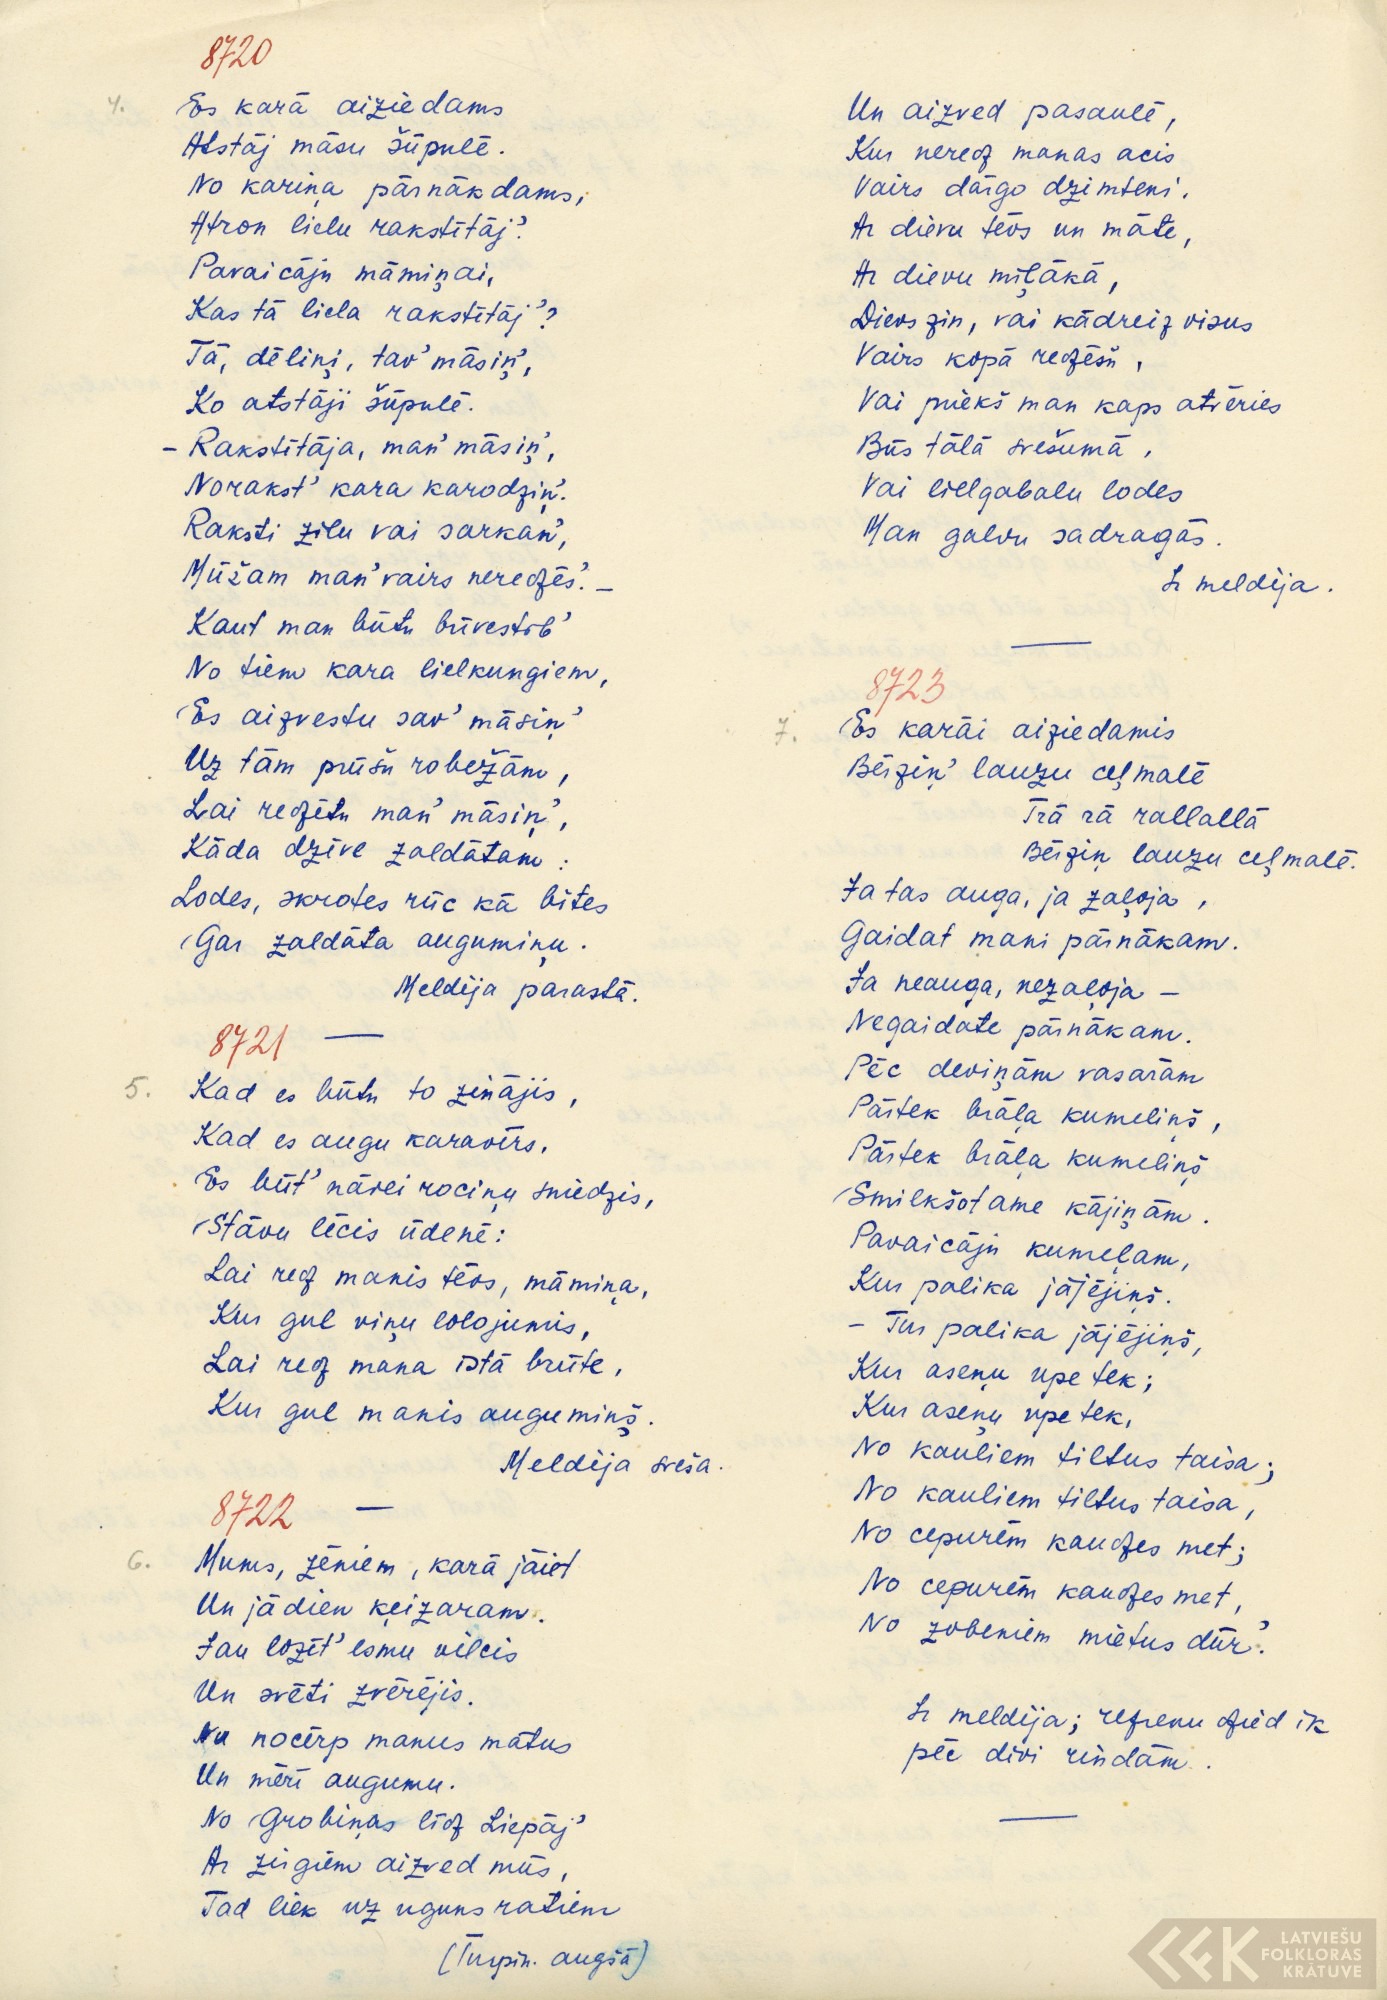 8720
4. Es karā aiziedams
Atstāj māsu šūpulē.
No kariņa pārnākdams,
Atron lielu rakstītāj'.
Pavaicāju māmiņai,
Kas tā liela rakstītāj'?
Tā, dēliņi, tav' māsiņ',
Ko atstāji šūpulē.
- Rakstītāja, man' māsiņ',
Norakst' kara karodziņ'.
Raksti zilu vai sarkan',
Mūžam man' vairs neredzēs'. -
Kaut man būtu būvestīb'
No tiem kara lielkungiem,
Es aizvestu sav' māsiņ'
Uz tām prūšu robežām,
Lai redzētu man' māsiņ',
Kāda dzīve zaldātam:
Lodes, skrotes rūc kā bites
Gar zaldāta augumiņu.
Meldija parastā.
8721
5. Kad es būtu to zinājis,
Kad es augu karavīrs,
Es būt' nāvei rociņu sniedzis,
Stāvu lēcis ūdenē:
Lai redz manis tēvs, māmiņa,
Kur gul viņu lolojumis,
Lai redz mana īstā brūte,
Kur gul manis augumiņš.
Meldija sveša.
8722
6. Mums, zēniem, karā jāiet
Un jādien ķeizaram.
Jau lozīt' esmu vilcis
Un svēti zvērējis.
Nu nocērp manus matus
Un mērī augumu.
No Grobiņas līdz Liepāj'
Ar zirgiem aizved mūs,
Tad liek uz uguns ratiem
(Turpin. augšā)
Un aizved pasaulē,
Kur neredz manas acis
Vairs dārgo dzimteni.
Ar dievu tēvs un māte,
Ar dievu mīļākā,
Dievs zin, vai kādreiz visus
Vairs kopā redzēšu,
Vai priekš man kaps atvēries
Būs tālā svešumā,
Vai lielgabalu lodes
Man galvu sadragās.
Ir meldija.
8723
7. Es karāi aiziedamis
Bērziņ' lauzu ceļmalē
Trā rā rallallā
Bērziņ lauzu ceļmalē.
Ja tas auga, ja zaļoja,
Gaidat mani pārnākam.
Ja neauga, nezaļoja -
Negaidate pārnākam.
Pēc deviņām vasarām
Pārtek brāļa kumeliņš,
Pārtek brāļa kumeliņš
Smilkšotame kājiņām.
Pavaicāju kumeļam,
Kur palika jājējiņš.
- Tur palika jājējiņš,
Kur aseņu upe tek;
Kur aseņu upe tek,
No kauliem tiltus taisa;
No kauliem tiltus taisa,
No cepurēm kaudzes met;
No cepurēm kaudzes met,
No zobeniem mietus dūr'.
Ir meldija; refrenu dzied ik
pēc divi rindām.
LATVIEŠU
FOLKLORAS
KRĀTUVE